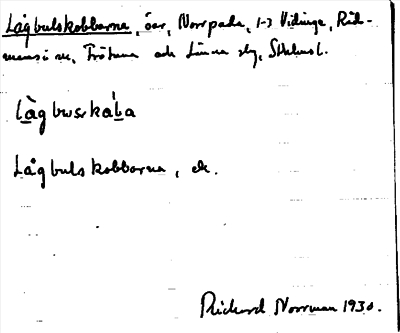 Lågbulskobbarna, öar, Norrpada, 1-3 Vidinge, Råd-
mansö sn, Frötuna och Länna slg, Sthlms l.
Lågbulskobbarna, ek.
Rickard Norrman 1930.